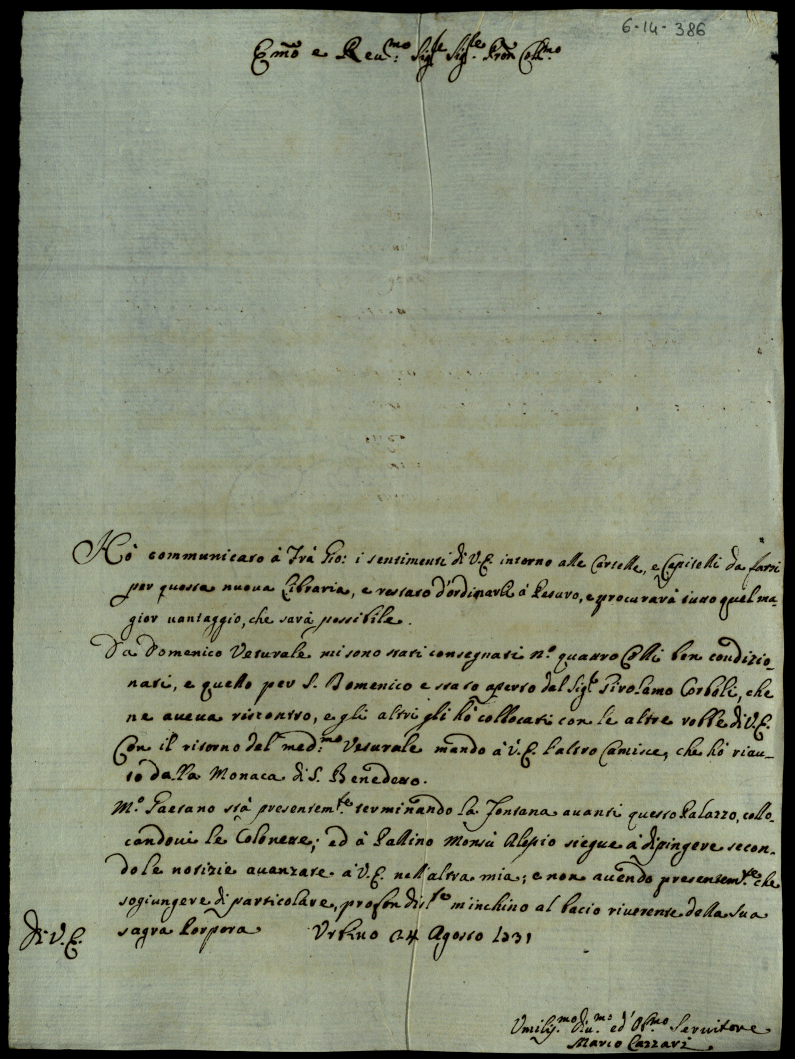 6-14-386
Emo͞ e Reu.mo Sig.re Sig.re Pron͞ Coll.mo
Hò communicato à Frà Gio: i sentimenti di V.E. intorno alle Cartelle, e Capitelli da farsi
per questa nuova Libraria, e restato d'ordinarli à Pesaro, e procurarà tutto quel ma-
gior uantaggio, che sarà possibile.
Da Domenico Veturale mi sono stati consegnati n.o quattro Colli ben condizio-
nati, e quello per S. Domenico e stato aperto dal Sig.r Girolamo Corboli, che
ne aueua riscontro, e gli altri gli hò collocati con le altre robbe di V.E.
Con il ritorno del med.mo Veturale mando à V.E. l'altro Camisce, che hò riau-
to dalla Monaca di S. Benedetto.
M.o Gaetano stà presentem.te terminando la Fontana auanti questo Palazzo, collo-
candoui le Colonette; ed à Pallino Monsù Alessio siegue à dipingere secon-
do le notizie auanzate à V.E. nell'altra mia; e non auendo presentem.te che
sogiungere di particolare, profondis.te m'inchino al bacio riuerente della Sua
sagra Porpora Vrbino 24 Agosto 1731
Di V.E.
Vmiliss.mo Diu.mo ed' Ob.mo Seruitore
Marco Lazzari